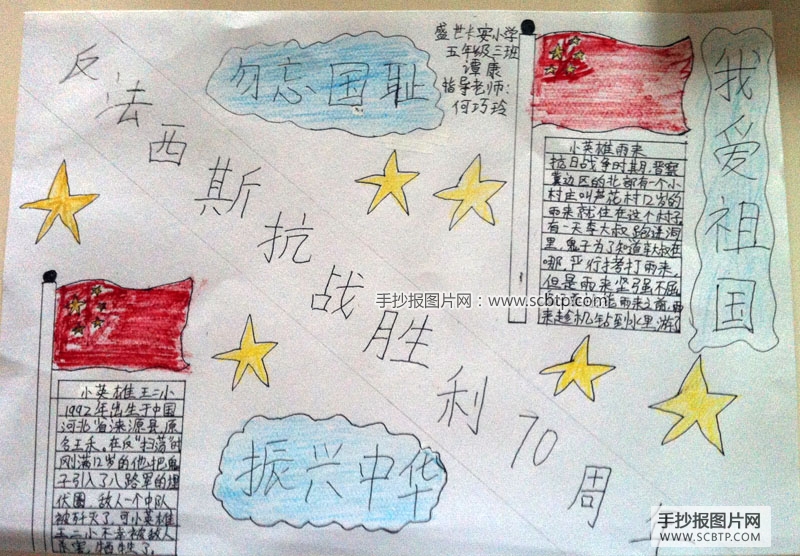 反法西斯抗战胜利70周
勿忘国耻
盛世长安小学
五年级三班
谭康
指导老师:
何巧玲
我爱祖国
小英雄雨来
抗日战争时期,晋察
冀边区的北部有一个小
村庄叫芦花村12岁的
雨来就住在这个村子
有一天李大叔跑进洞
里,鬼子为了知道李大叔在
哪,严行拷打雨来,
但是雨来坚强不屈
雨来之前,雨
来趁机钻到水里,游
手抄报图片网:www.scbtp.com
小英雄王二小
1992年出生于中国
河北省涞源县,原
名王禾。在反"扫荡"时
刚满12岁的他把鬼
子引入了八路军的埋
伏圈。敌人一个中队
被歼灭了。可小英雄
王二小不幸被敌人
杀害,牺牲了。
振兴中华
手抄报图片网
SCBTP.COM